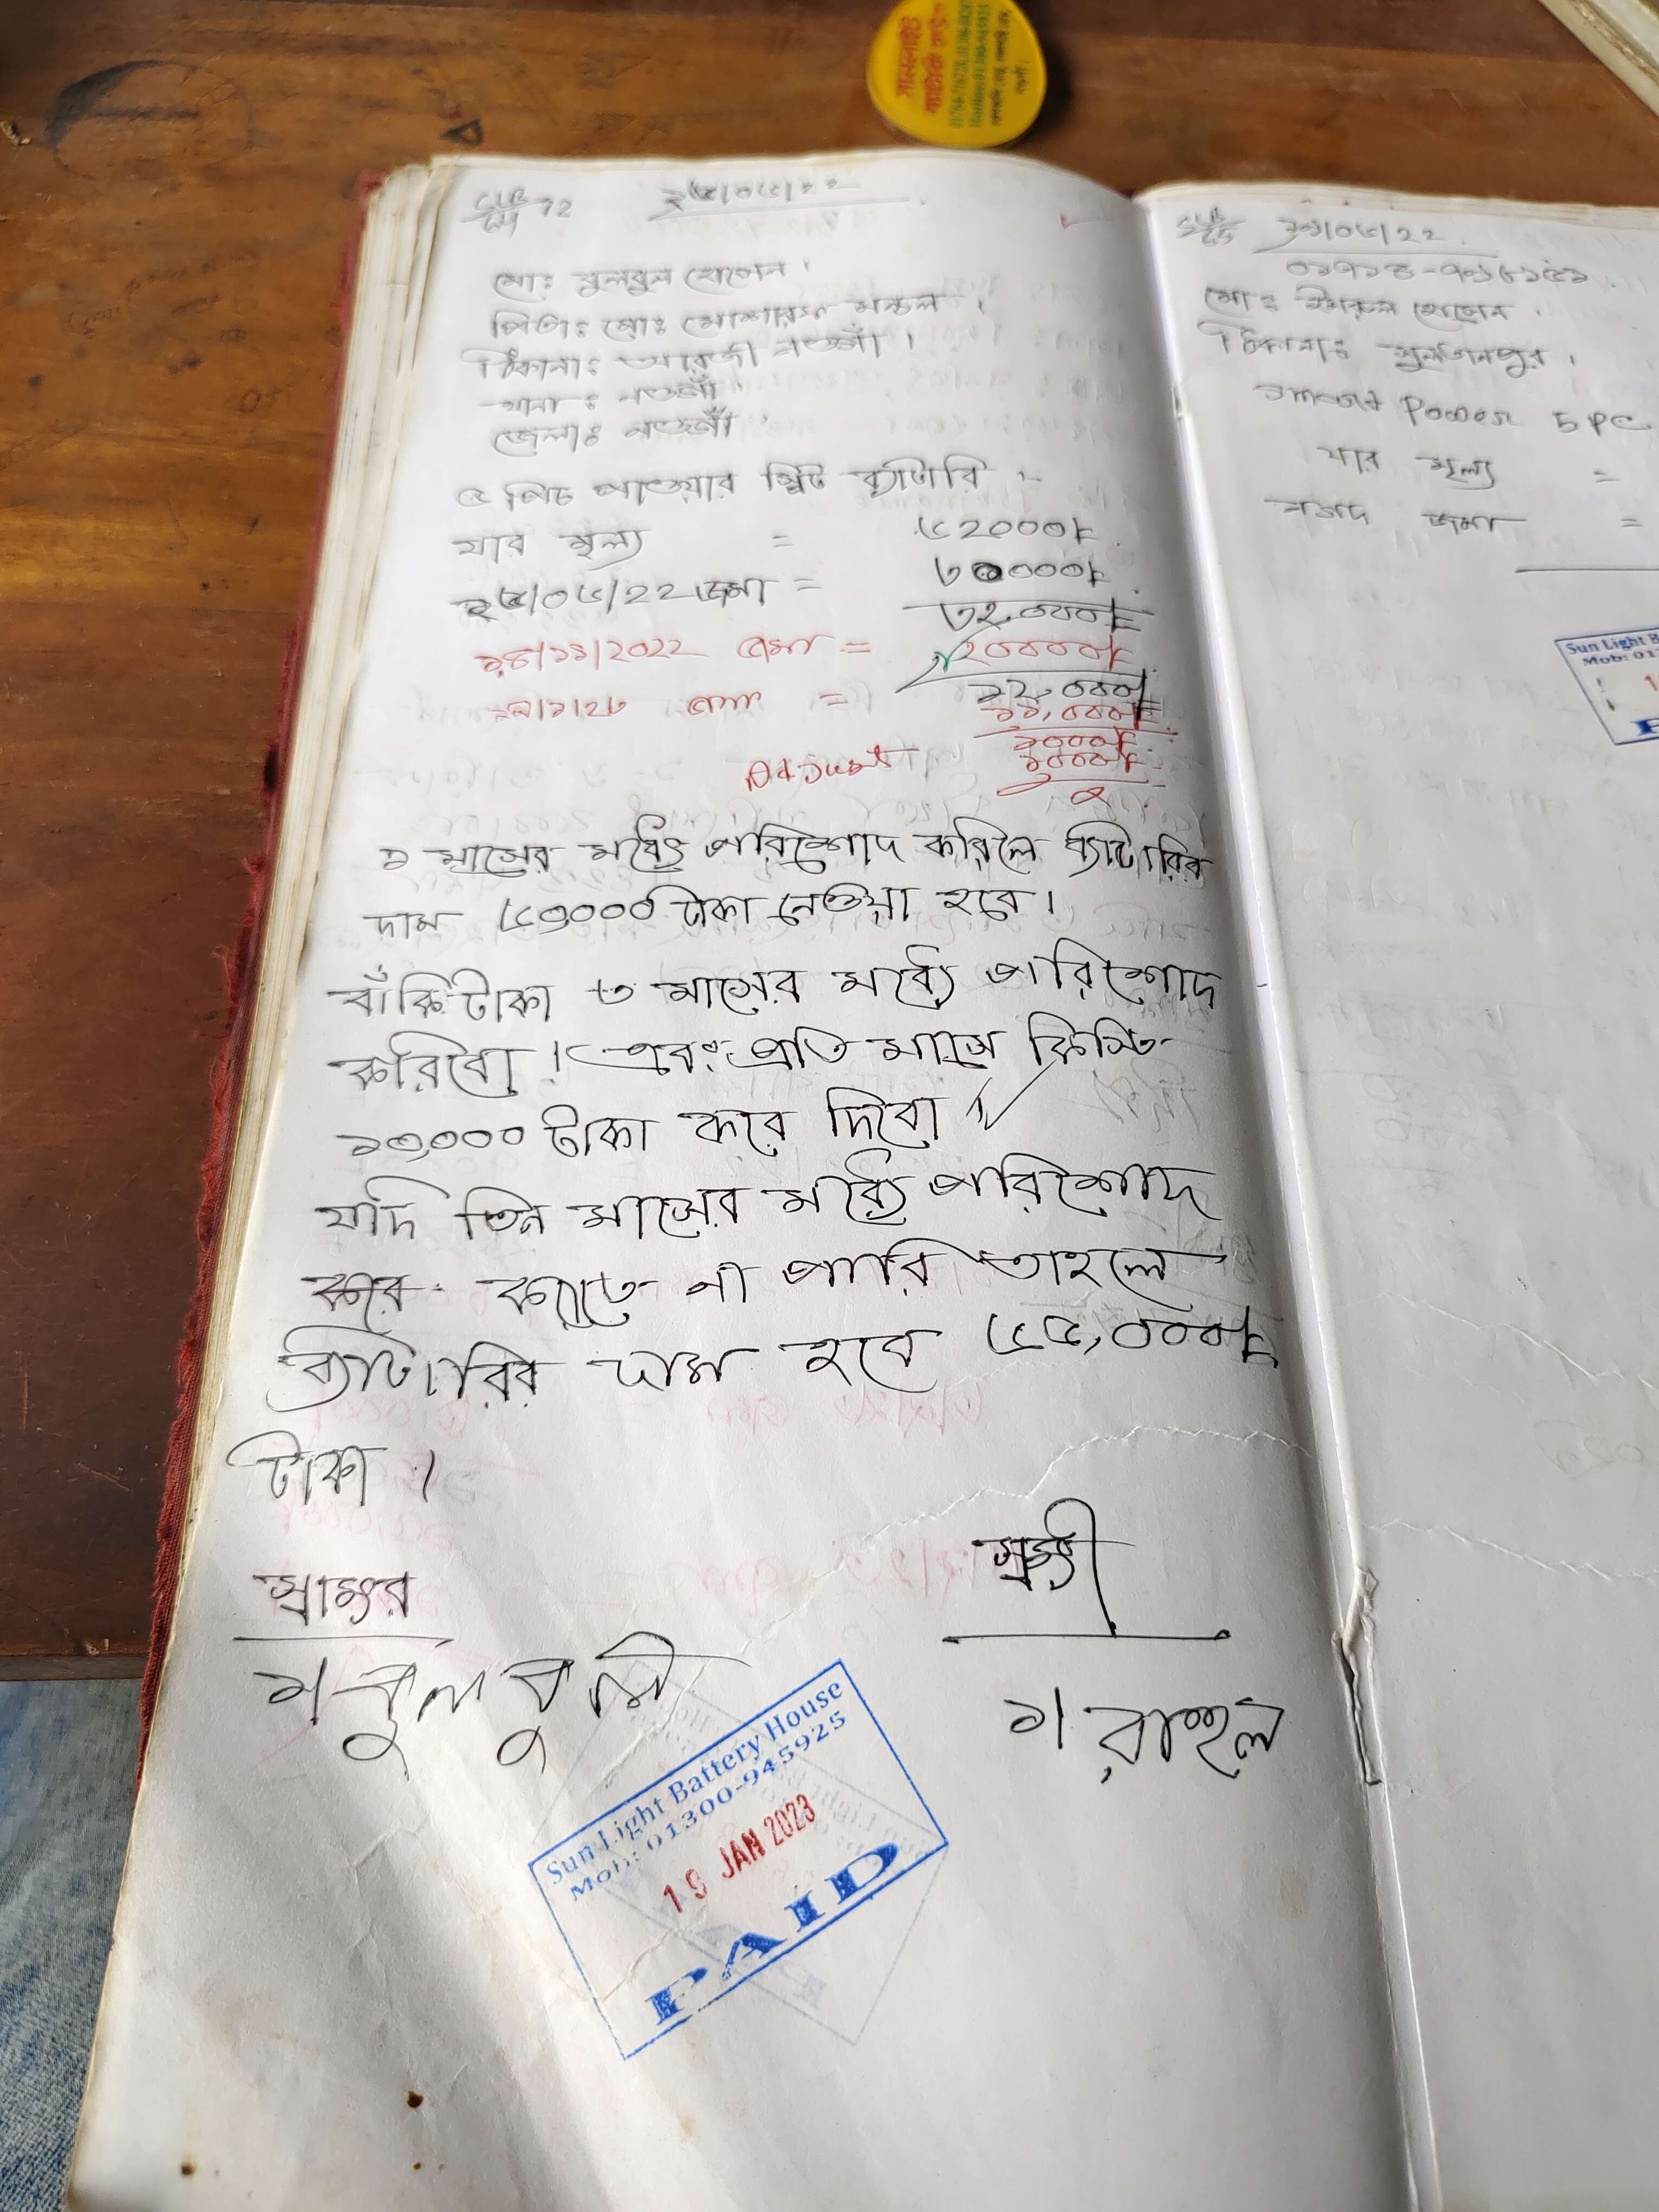 মোঃ বুলবুল হোসেন ।
পিতাঃ মোঃ মোশারফ মন্ডল ।
ঠিকানাঃ আরজী নওগাঁ ।
থানা : নওগাঁ ।
জেলাঃ নওগাঁ ।
৫ পিচ পাওয়ার প্লিট ব্যাটারি :-
যার মূল্য = ৫২০০০৳
/০৫/২২ জমা = ৩০০০০৳
৩২,০০০৳
১৪/১১/2022 জমা = ২০০০০৳
১২,০০০৳
১৯/১/২৩ জমা = ১১,০০০৳
১০০০৳
Adjust ১০০০৳
১ মাসের মধ্যে পরিশোদ করিলে ব্যাটারির
দাম ৫০০০০ টাকা নেওয়া হবে ।
বাঁকি টাকা ৩ মাসের মধ্যে পরিশোদ
করিবো । এবং প্রতি মাসে কিস্তি
১০,০০০ টাকা করে দিবো ।
যদি তিন মাসের মধ্যে পরিশোদ
করে করতে না পারি তাহলে
ব্যাটারির দাম হবে ৫৫,০০০৳
টাকা ।
স্বাক্ষর
১। বুলবুলি
সাক্ষী
১। রাহুল
Sun Light Battery House
Mob: 01300-945925
19 JAN 2023
PAID
/০৫/22
মোঃ হোসেন .
ঠিকানাঃ সুলতানপুর ।
Smart Power 5 pc
যার মূল্য =
নগদ জমা =
Sun Light B
Mob: 01